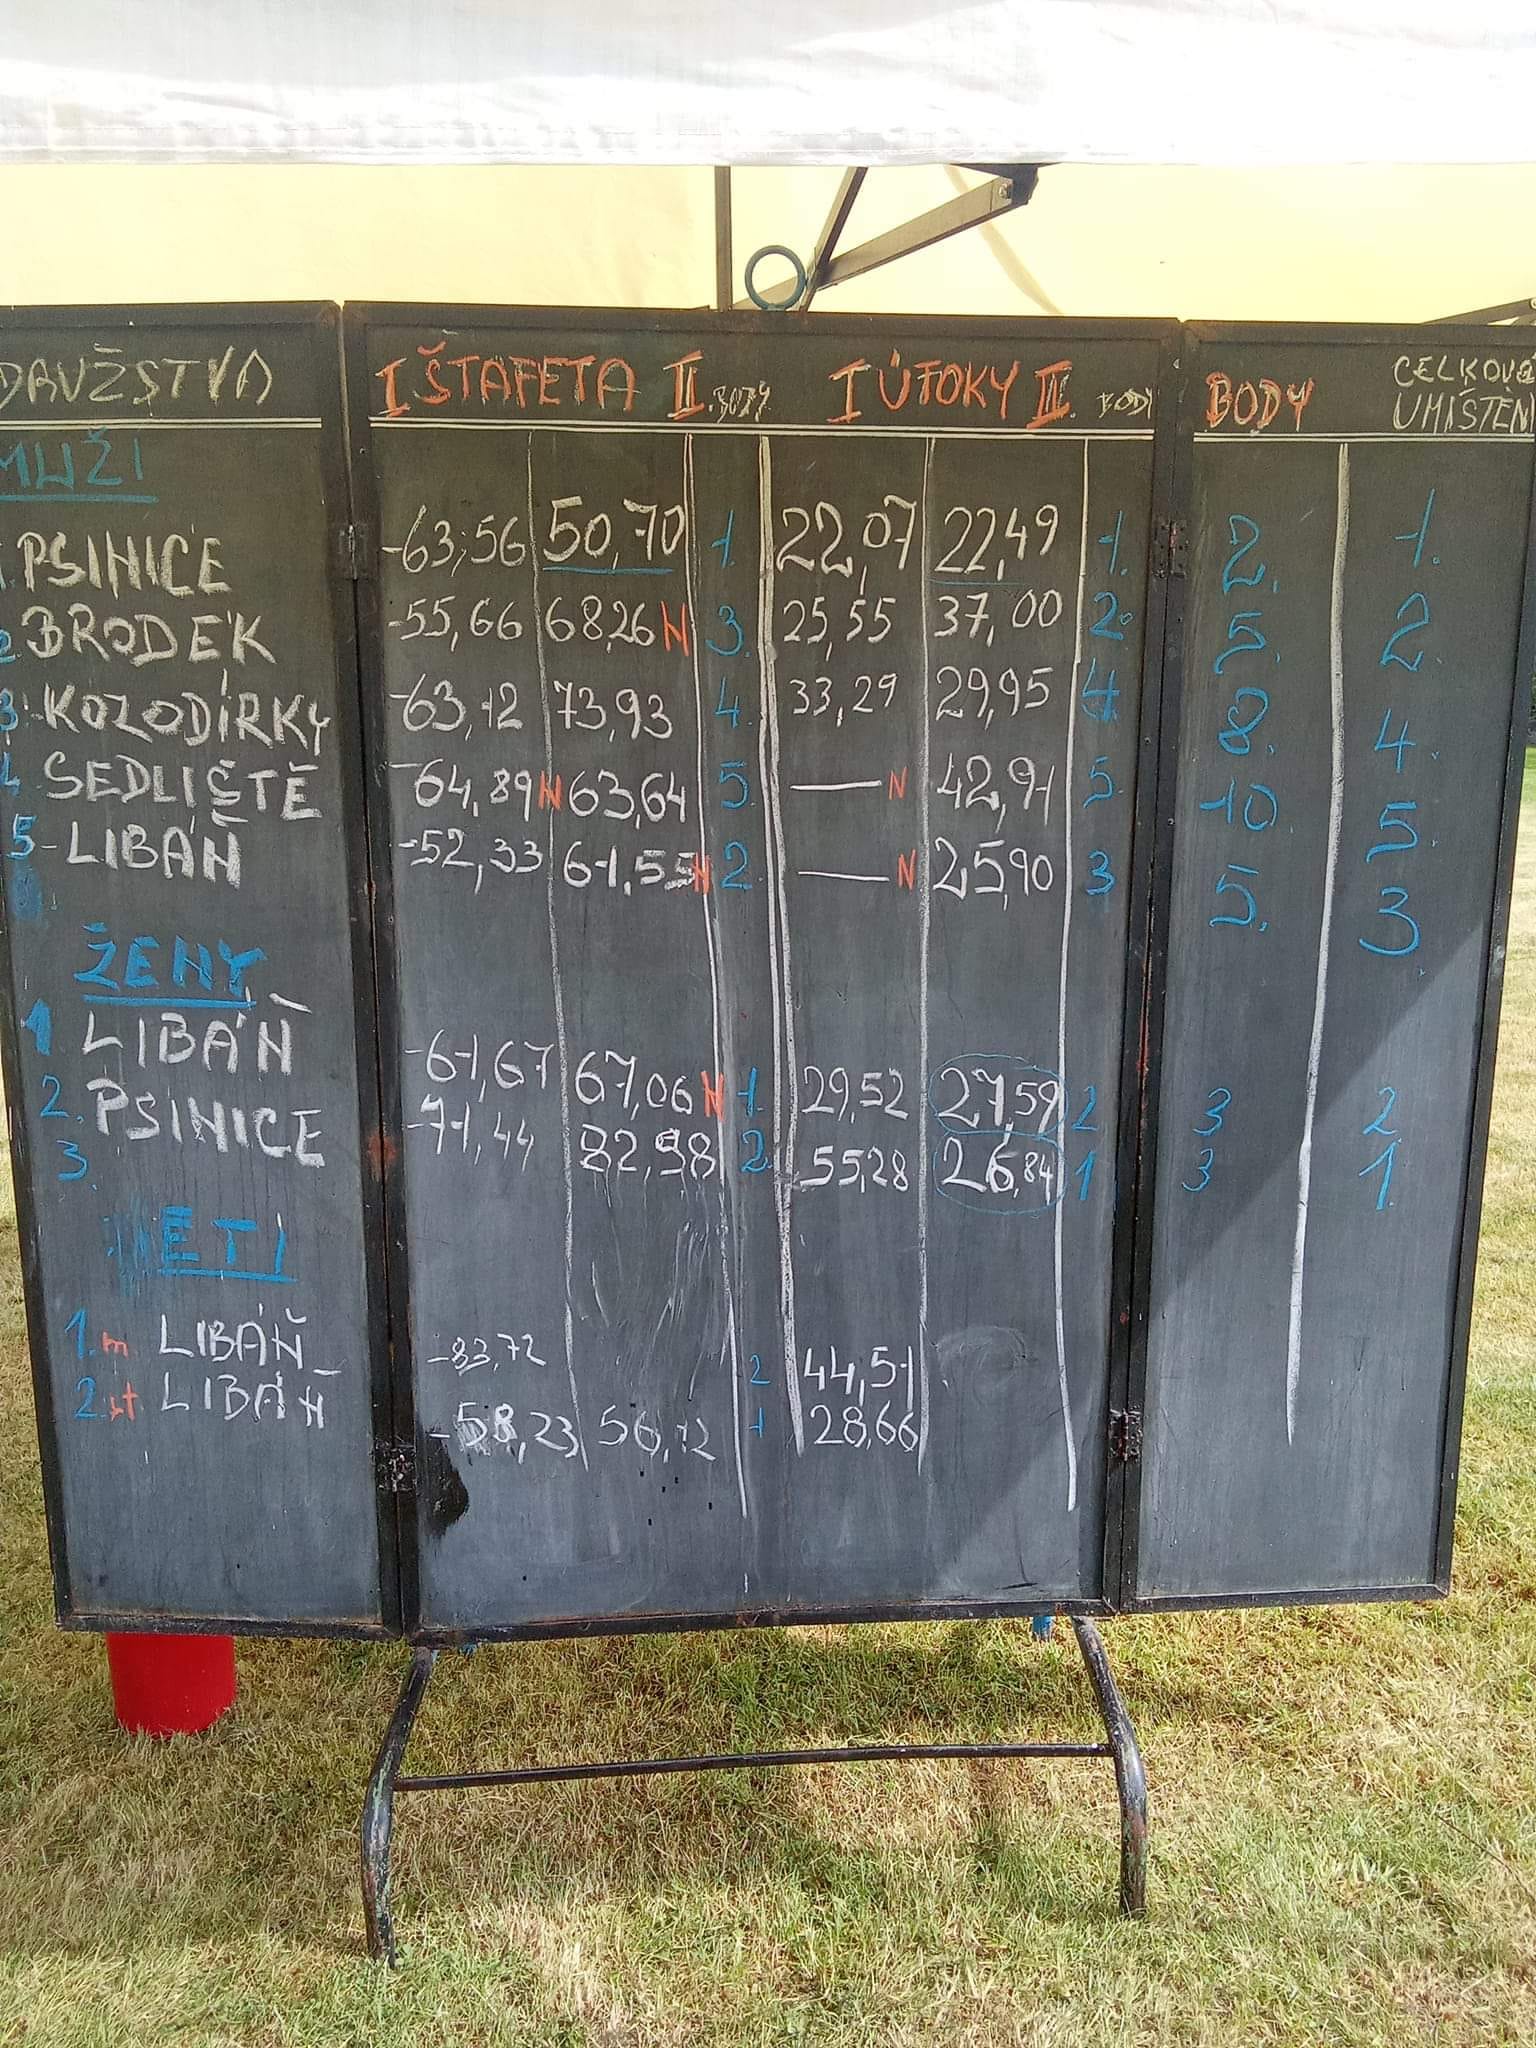 DRUŽSTVA I ŠTAFETA II. BODY I ÚTOKY II. BODY BODY CELKOVÉ
UMÍSTĚNÍ
MUŽI
1. PSINICE -63,56 50,70 1. 22,07 22,49 1. 2. 1.
2. BRODEK -55,66 68,26 N 3. 25,55 37,00 2. 5. 2.
3. KOZODÍRKY -63,12 73,93 4. 33,29 29,95 4 8. 4.
4 SEDLIŠTĚ -64,89 N 63,64 5. — N 42,91 5. 10. 5.
5- LIBÁŇ -52,33 61,55 N 2. — N 25,90 3 5. 3.
ŽENY
1 LIBÁŇ -61,67 67,06 N 1. 29,52 27,59 2 3 2
2. PSINICE -71,44 82,98 2. 55,28 26,84 1 3 1.
3.
ĚTI
1. m LIBÁŇ -83,72 2 44,51
2. st LIBÁŇ -58,23 56,12 1 28,66